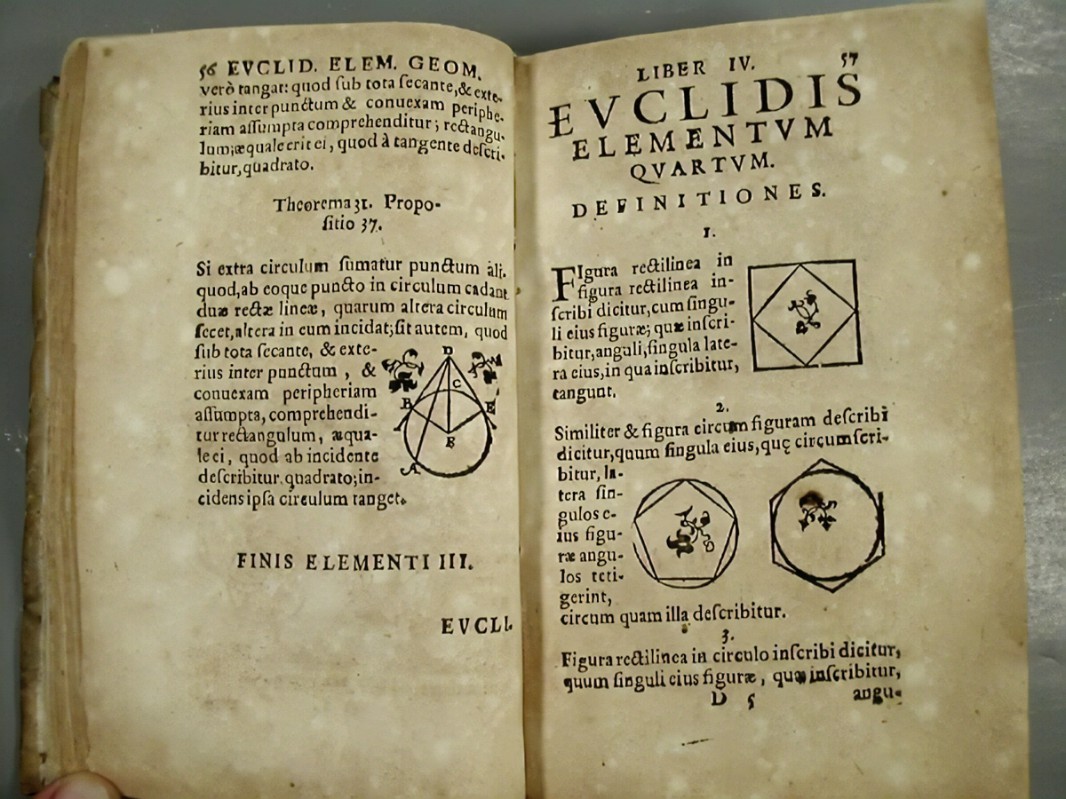 56 EVCLID. ELEM. GEOM.
verò tangat: quod ſub tota ſecante, & exte-
rius inter punctum & conuexam periphe-
riam aſſumpta comprehenditur; rectangu-
lum; æquale erit ei, quod à tangente deſcri-
bitur, quadrato.
Theorema 31. Propo-
ſitio 37.
Si extra circulum ſumatur punctum ali-
quod, ab eoque puncto in circulum cadant
duæ rectæ lineæ, quarum altera circulum
ſecet, altera in eum incidat; ſit autem, quod
ſub tota ſecante, & exte-
rius inter punctum, &
conuexam peripheriam
aſſumpta, comprehendi-
tur rectangulum, æqua-
le ei, quod ab incidente
deſcribitur quadrato; in-
cidens ipſa circulum tanget.
D
C
B E
E
A
FINIS ELEMENTI III.
EVCLI-
LIBER IV. 57
EVCLIDIS
ELEMENTVM
QVARTVM.
DEFINITIONES.
1.
FIgura rectilinea in
figura rectilinea in-
ſcribi dicitur, cum ſingu-
li eius figuræ; quæ inſcri-
bitur, anguli, ſingula late-
ra eius, in qua inſcribitur,
tangunt.
2.
Similiter & figura circum figuram deſcribi
dicitur, quum ſingula eius, quę circumſcri-
bitur, la-
tera ſin-
gulos e-
ius figu-
ræ angu-
los teti-
gerint,
circum quam illa deſcribitur.
3.
Figura rectilinea in circulo inſcribi dicitur,
quum ſinguli eius figuræ, quæ inſcribitur,
D 5 angu-